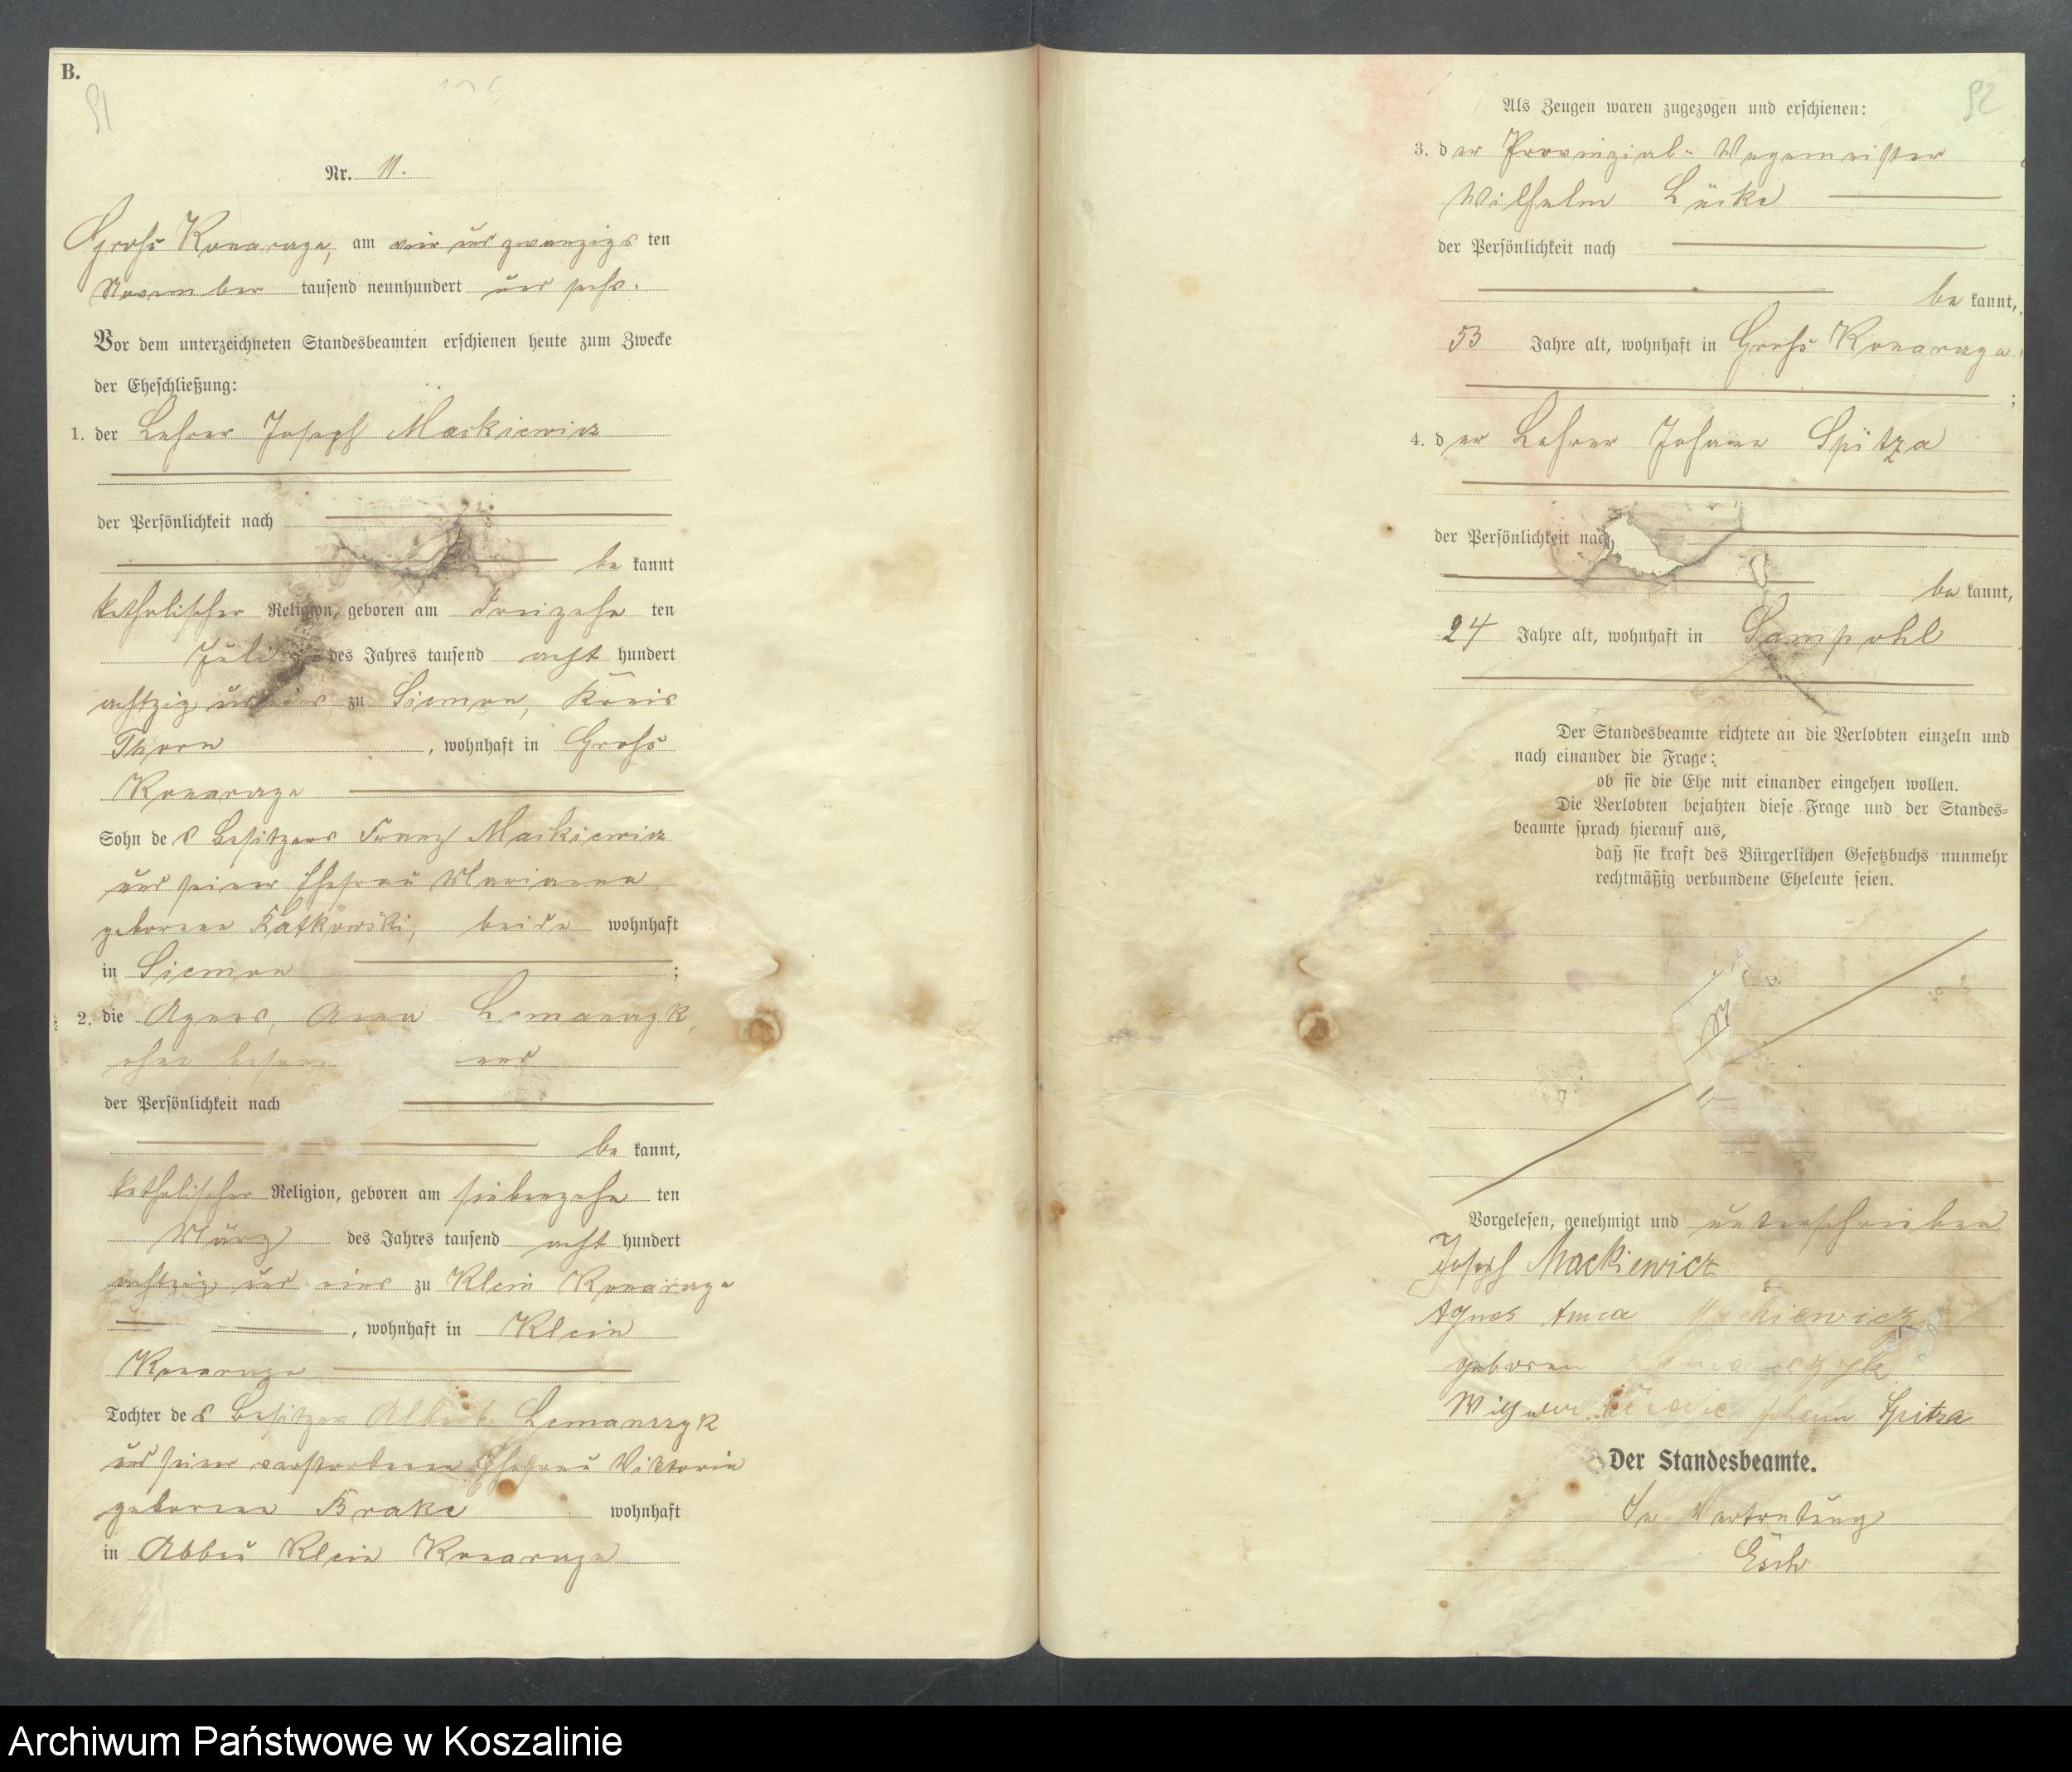 B.
91
Nr. 11.
Gross Konarczyn, am vier und zwanzigs ten
November tausend neunhundert und sechs.
Vor dem unterzeichneten Standesbeamten erschienen heute zum Zwecke
der Eheschließung:
1. der Lehrer Joseph Mackiewicz
der Persönlichkeit nach
be kannt
katholischer Religion, geboren am dreizehn ten
Juli des Jahres tausend acht hundert
achtzig und eins zu Siemon, Kreis
Thorn, wohnhaft in Gross
Sohn de s Besitzers Franz Mackiewicz
und seiner Ehefrau Marianna
geborene beide wohnhaft
in Siemon ;
2. die Agnes, Anna
ohne
der Persönlichkeit nach
be kannt,
katholischer Religion, geboren am siebenzehn ten
März des Jahres tausend acht hundert
achtzig und eins zu Klein
, wohnhaft in Klein
Tochter de s Besitzer Albert Lemanczyk
und seiner verstorbenen Ehefrau Viktoria
geborene wohnhaft
in Abbau Klein
92
Als Zeugen waren zugezogen und erschienen:
3. d er Provinzial-Wegemeister
Wilhelm Lücke
der Persönlichkeit nach
be kannt,
53 Jahre alt, wohnhaft in Gross
;
4. d er Lehrer Johann Spitza
der Persönlichkeit nach
be kannt,
24 Jahre alt, wohnhaft in Sampohl
Der Standesbeamte richtete an die Verlobten einzeln und
nach einander die Frage:
ob sie die Ehe mit einander eingehen wollen.
Die Verlobten bejahten diese Frage und der Standes=
beamte sprach hierauf aus,
daß sie kraft des Bürgerlichen Gesetzbuchs nunmehr
rechtmäßig verbundene Eheleute seien.
Vorgelesen, genehmigt und unterschrieben
Joseph Mackiewicz
Agnes Anna Mackiewicz
geboren
Johann Spitza
Der Standesbeamte.
In Vertretung
Esch
Archiwum Państwowe w Koszalinie